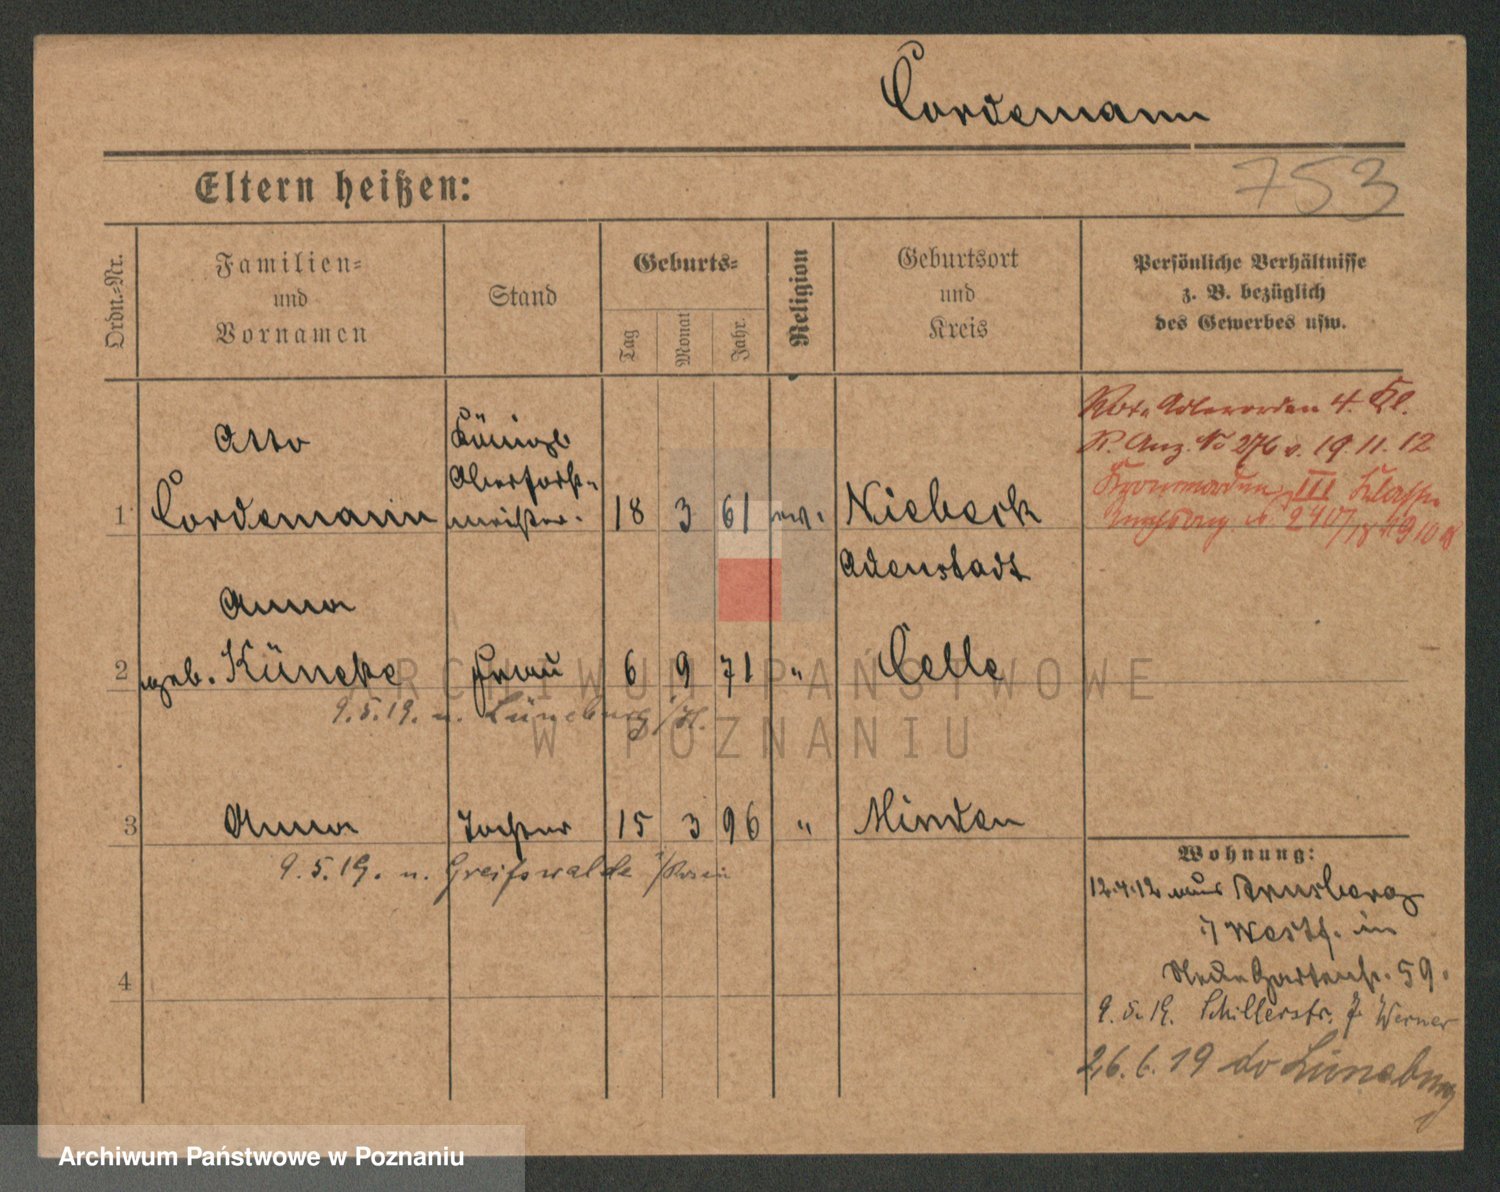 Cordemann
753
Eltern heißen:
Ordn.-Nr.
Familien- und Vornamen
Stand
Geburts-
Tag
Monat
Jahr.
Religion
Geburtsort und Kreis
Persönliche Verhältnisse
z. B. bezüglich
des Gewerbes usw.
Otto
Königl
Oberforst-
1 Cordemann meister. 18 3 61 ev. Niebeck
Adenstadt
Rot. Adlerorden 4. Kl.
R. Anz. No 276 v. 19.11.12
Kronenorden III Klasse
Anna
2 geb. Küneke Frau 6 9 71 " Celle
9.5.19. n. Lüneburg /H.
3 Anna Tochter 15 3 96 " Minden
9.5.19. n. Greifswalde
4
Wohnung:
12.4.12 aus Arnsberg
i/ Westf. in
Neue Gartenstr. 59.
9.5.19. Schillerstr. 7 Werner
26.6.19 do Lüneburg
ARCHIWUM PAŃSTWOWE
W POZNANIU
Archiwum Państwowe w Poznaniu